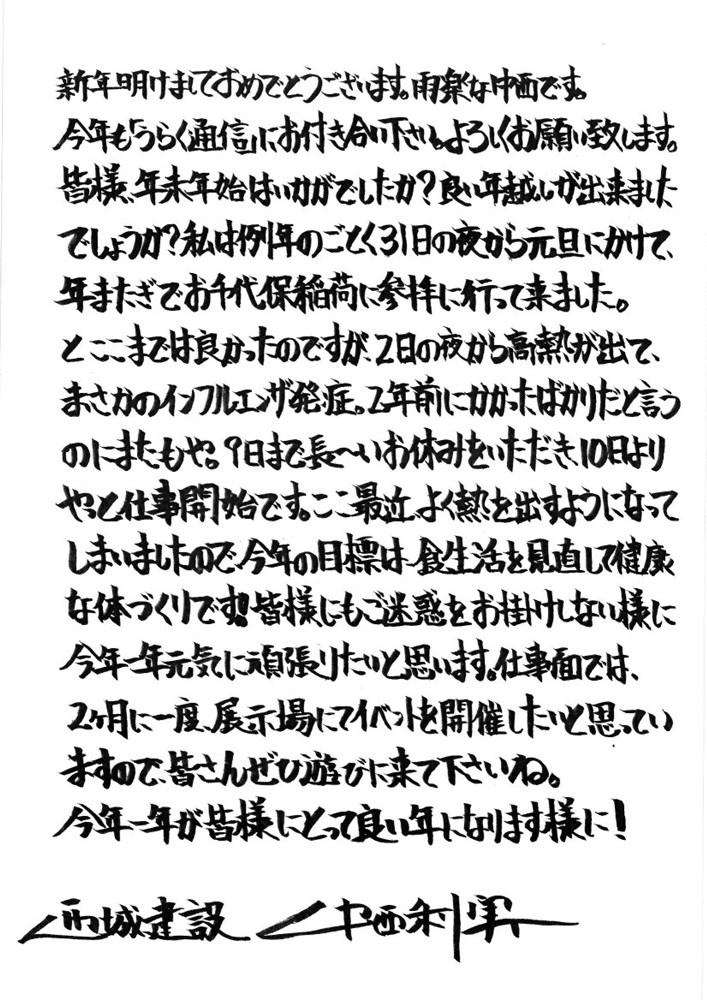 新年明けましておめでとうございます。雨楽な中西です。
今年も「うらく通信」にお付き合い下さい。よろしくお願い致します。
皆様、年末年始はいかがでしたか?良い年越しが出来ました
でしょうか?私は例年のごとく31日の夜から元旦にかけて、
年またぎでお千代保稲荷に参拝に行って来ました。
とここまでは良かったのですが、2日の夜から高熱が出て、
まさかのインフルエンザ発症。2年前にかかったばかりだと言う
のにまたもや。9日まで長〜いお休みをいただき、10日より
やっと仕事開始です。ここ最近、よく熱を出すようになって
しまいましたので、今年の目標は、食生活を見直して健康
な体づくりです!皆様にもご迷惑をお掛けしない様に
今年一年元気に頑張りたいと思います。仕事面では、
2ヶ月に一度、展示場にてイベントを開催したいと思ってい
ますので、皆さんぜひ遊びに来て下さいね。
今年一年が皆様にとって良い年になります様に!
西城建設 中西利実